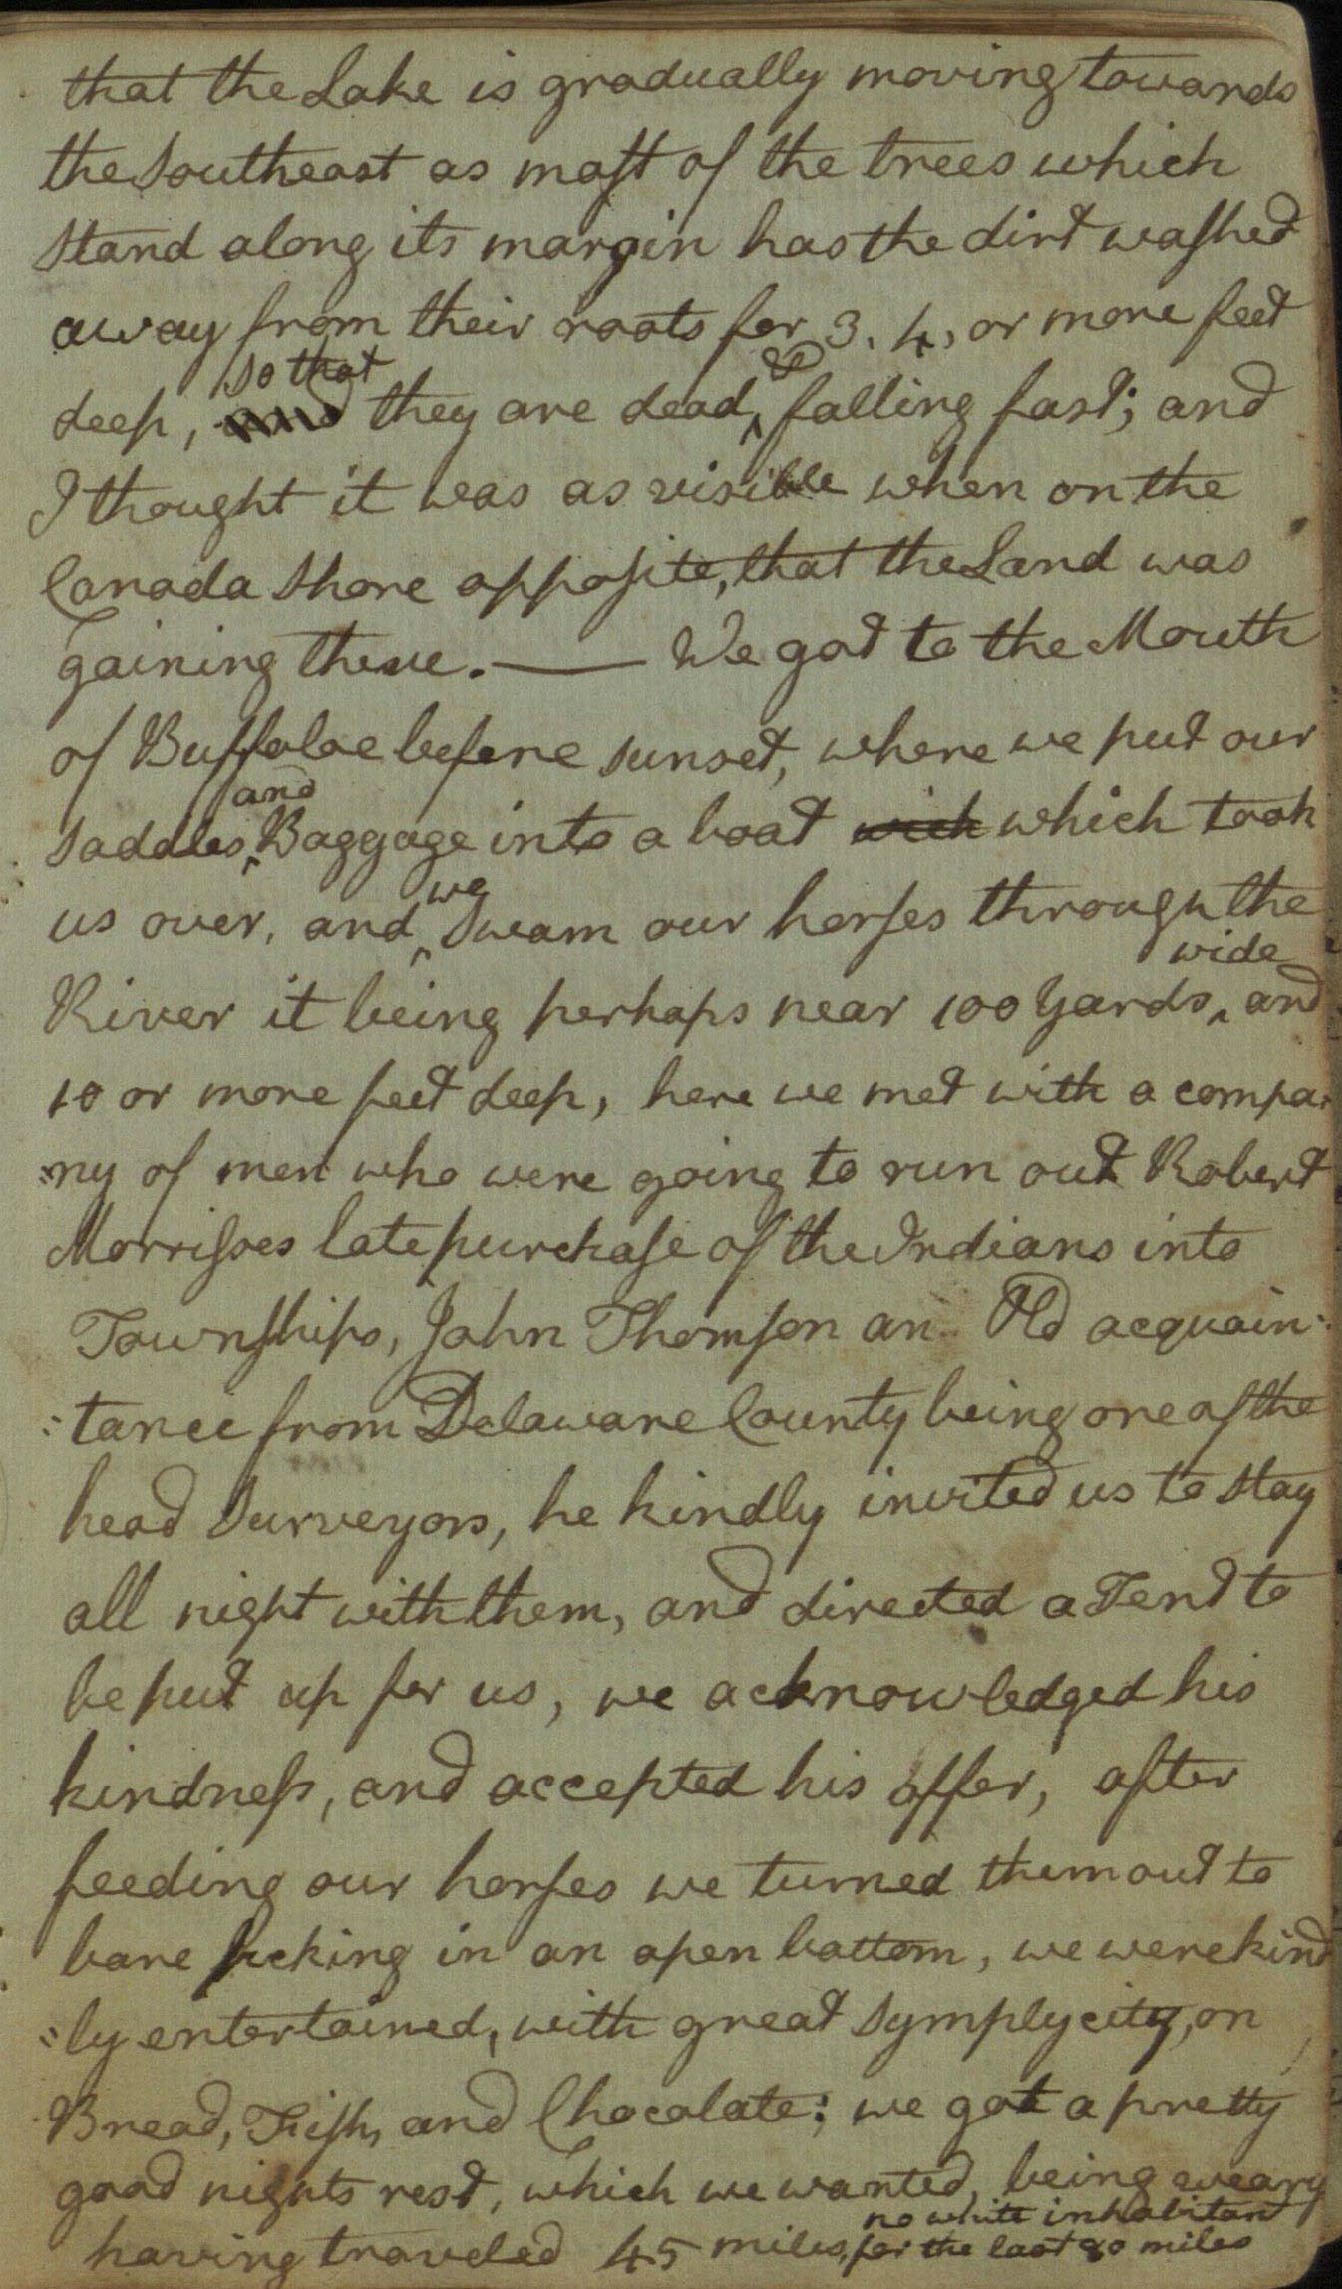 that the Lake is gradually moving towards
the Southeast as most of the trees which
stand along its margin has the dirt washed
away from their roots for 3, 4, or more feet
so that &
deep, and they are dead, falling fast; and
I thought it was as visible when on the
Canada Shore opposite, that the Land was
gaining there. — We got to the Mouth
of Buffaloe before sunset, where we put our
and
saddles, Baggage into a boat wich which took
we
us over, and Swam our horses through the
wide
River it being perhaps near 100 Yards, and
10 or more feet deep, here we met with a compa-
=ny of men who were going to run out Robert
Morrisses late purchase of the Indians into
Townships, John Thomson an Old acquain=
=tance from Delaware County being one of the
head Surveyors, he kindly invited us to stay
all night with them, and directed a Tent to
be put up for us, we acknowledged his
kindness, and accepted his offer, after
feeding our horses we turned them out to
bare picking in an open bottom, we were kind
=ly entertained, with great Symplycity, on
Bread, Fish, and Chocolate; we got a pretty
good nights rest, which we wanted, being weary
no white inhabitant
having traveled 45 miles, for the last 80 miles